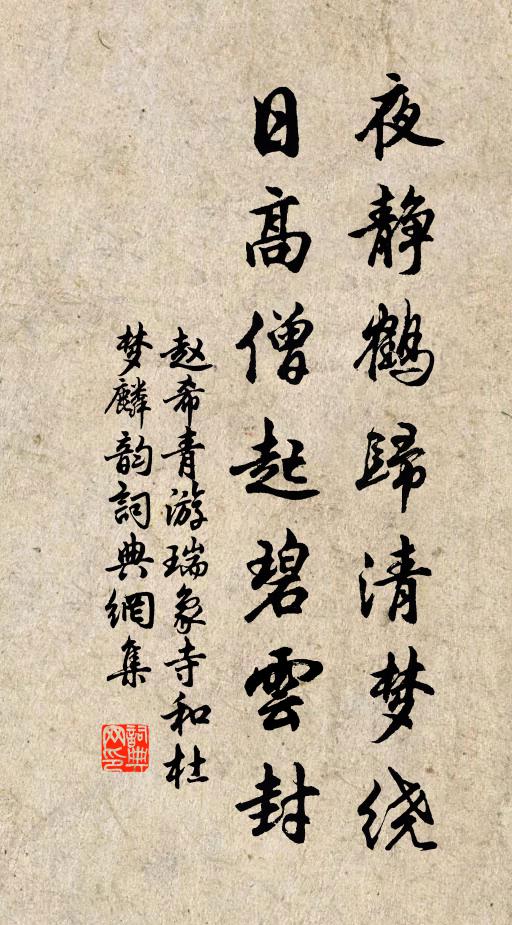 夜静鹤歸清梦绕
日高僧起碧雲封
赵希青游瑞象寺和杜
梦麟韵詞典網集
詞典网印